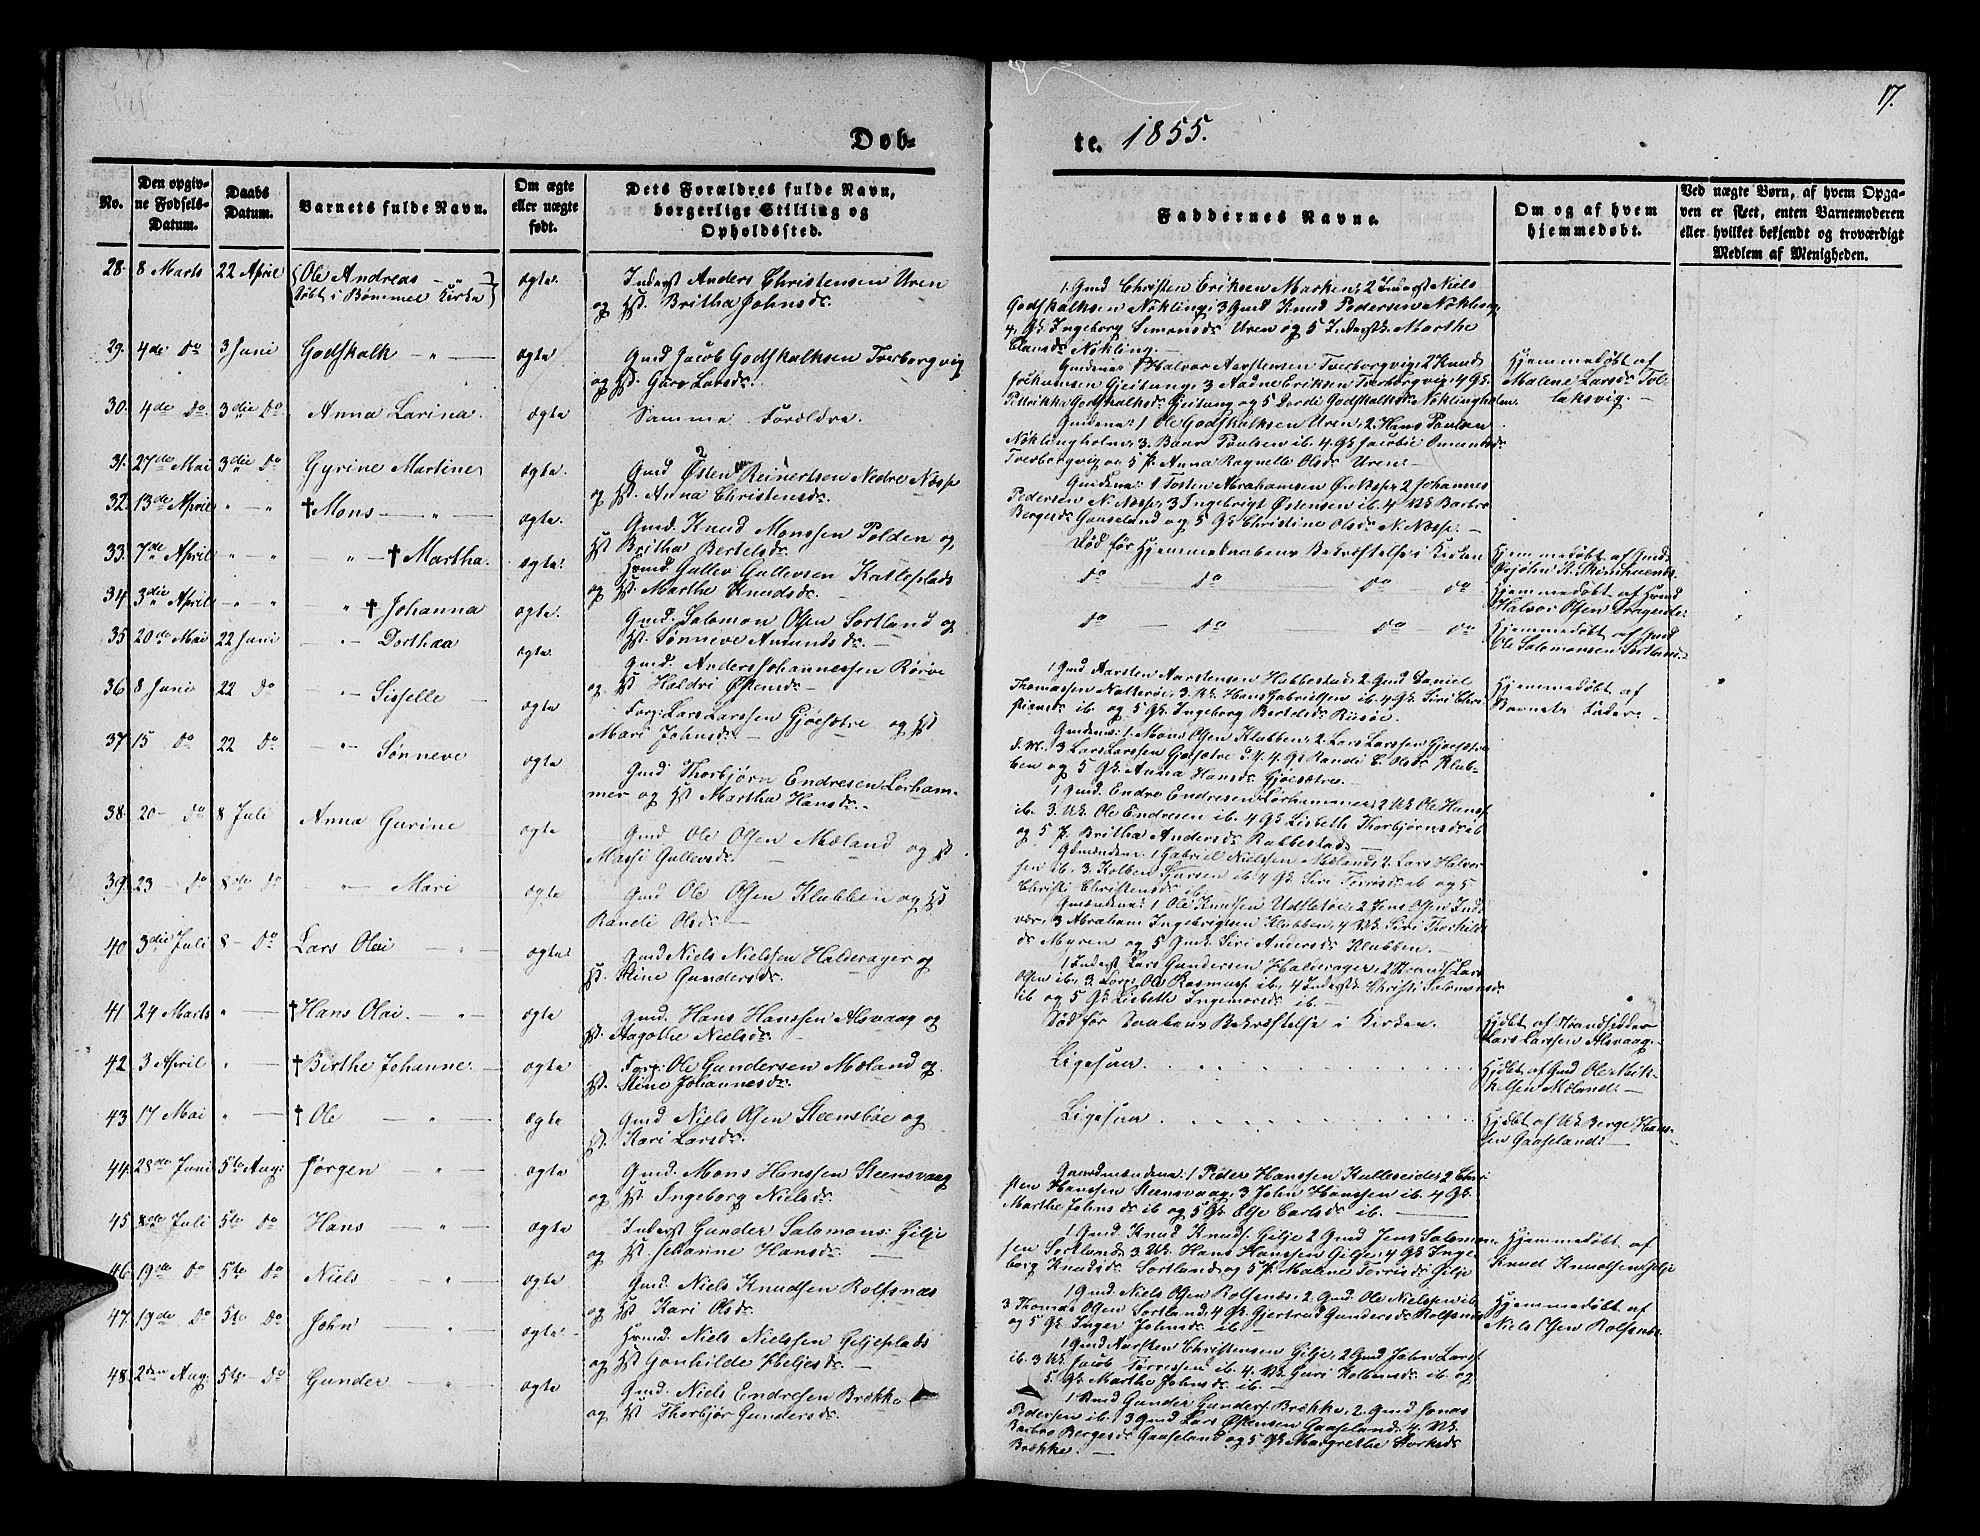 17.
Døb-
te. 1855.
No.
Den opgiv-
ne Fødsels-
Datum.
Daabs
Datum.
Barnets fulde Navn.
Om ægte
eller uægte
født.
Dets Forældres fulde Navn,
borgerlige Stilling og
Opholdssted.
Faddernes Navne.
Om og af hvem
hjemmedøbt.
Ved uægte Børn, af hvem Opga-
ven er skeet, enten Barnemoderen
eller hvilket bekjendt og troværdigt
Medlem af Menigheden.
28. 8 Marts 22 April Ole Andreas
døbt i Bømmel Kirke
ægte. Inderst Anders Christensen Uren
og Hst. Britha Johnsdr.
1 Gmd Christen Eriksen Marken, 2 Inderst Niels
Godskalksen Nökling, 3 Gmd Knud Pedersen Nökling,
4, Gk. Ingeborg Simonsdr Uren og 5 Inderstk. Marthe
Clausdr Nökling.
29. 4de Do 3 Juni Godskalk
ægte Gmd Jacob Godskalksen Tverborgvig
og Hst. Guro Larsdr.
Gmdene: 1 Halvor Aarstensen Tverborgvig, 2 Knud
Jochumsen Gjeitung, 3 Aadne Eriksen Tverborgvig, 4 Gk.
Pedrikke Godskalksdr Gjeitung og 5 Dordi Godskalksdr Nöklingholm.
Hjemmedøbt af
Malene Larsdr Tol-
laksvig.
30. 4de Do. 3die Do. Anna Larina.
ægte Samme Forældre.
Gmdene: 1 Ole Godskalksen Uren, 2. Hans Poulsen
Nöklingholm, 3. Baar Poulsen ib. 4 Gk Jacobie Omundsdr
Tverborgvig og 5 P. Anna Ragnelle Olsdr Uren.
31. 27de Mai 3die Do Gyrine Martine
ægte. Gmd Østen Reinertsen Nedre Næsse
og Hst. Anna Christensdr.
Gmdene: 1 Tosten Abrahamsen Ø. Næsse, 2 Johannes
Pedersen N. Næsse, 3 Ingebrigt Østensen ib. 4 Uk Barbro
Bergesdr Gaaseland og 5 Gk Christine Olsdr N. Næsse.
32. 13de April † Mons
ægte. Gmd. Knud Monssen Folden og
Hst Britha Bertelsdr.
Død før Hjemmedaabens Bekræftelse i Kirken
Hjemmedøbt af Gmd.
33. 7de April † Martha.
ægte. Hsmd Gullev Gullevsen Katleplads
og Hst. Marthe Knudsdr.
do do do do
Hjemmedøbt af Hsmd
Halvor Olsen
34 3die April † Johanna
ægte. Gmd. Salomon Olsen Sortland og
Hst. Sønneve Amundsdr.
do do do do
Hjemmedøbt af Gmd
Ole Salomonsen Sortland.
35. 20de Mai 22 Juni Dorthea
ægte. Gmd. Anders Johannessen Rörve
og Hst Haldri Østensdr
1 Gmd Aarsten Aarstensen Habbestad, 2 Gmd Daniel
Thomassen Natterøi, 3. Uk. Hans Gabrielsen ib. 4 Gk Siri Chri-
stiansdr ib og 5 Gk. Ingeborg Bertelsdr
Hjemmedøbt af
Barnets Fader.
36 8 Juni 22 Do Sisselle
ægte Forp: Lars Larssen Gjøesætre og Hst
Mari Johnsdr.
Gmdene: 1 Mons Olsen Klubben, 2. Lars Larssen Gjøesætre
3 Lars Larssen Gjøsætre 4 Gk Randi E. Olsdr Klub-
ben og 5 Gk. Anna Hansdr Gjøesætre.
37. 15 Do 22 Do Sønneve
ægte Gmd: Thorbjørn Endresen Lørham-
mer og Hst Martha Hansdr.
1 Gmd. Endre Endresen Lørhammer, 2 Uk Ole Hanss.
ib. 3. Uk. Ole Endresen ib. 4 Gk Lisbeth Thorbjørnsdr ib
og 5 P. Britha Andersdr Rabbestad.
38. 20 Do 8 Juli Anna Gurine
ægte Gmd Ole Olsen Mæland og Hst
Massi Gullevsdr.
Gdmændene: 1 Gabriel Nielssen Mæland, 2. Lars Halvor-
sen ib. 3. Kolben ib 4 Gk. Siri Torrisdr ib og 5
Christi Christensdr ib.
39. 23 Do 8de Do Mari
ægte Gmd Ole Olsen Klubben og Hst
Randi Olsdr.
Gmændene: 1 Ole Knudsen Udsletøe, 2 Jens Olsen Ind-
vær, 3 Abraham Ingebrigtsen Klubben, 4 Uk. Siri Thorkilds-
dr. Myren og 5 Gmk. Siri Andersdr Klubben.
40 3die Juli 8 Do Lars Olai
ægte Gmd Niels Nielssen Halderager og
Hst. Stine Gundersdr.
1 Inderst Lars Gundersen Halderager, 2 Strands. Lars
Olsen ib. 3. Forp. Ole Rasmuss. ib, 4 Inderstk. Christi Salomonsdr
ib og 5 Gk Lisbeth Ingemorsdr ib.
41. 24 Marts † Hans Olai.
ægte Gmd. Hans Hanssen Alsvaag og
Hst. Aagothe Nielsdr.
Død før Daabens Bekræftelse i Kirken.
Hjdøbt af Strandsidder
Lars Larssen Alsvaag.
42. 3 April † Birthe Johanne.
ægte Forp: Ole Gundersen Mæland og
Hst. Stine Johannesdr.
Ligesaa
Hjdøbt af Gmd Ole Mik-
kelsen Mæland.
43 17 Mai † Ole
ægte Gmd Niels Olsen Steensbøe og
Hst. Kari Larsdr.
Ligesaa
Hjdøbt af Uk Berge Hans-
sen Gaaseland.
44. 28de Juni 5te Aug: Jørgen
ægte Gmd. Mons Hanssen Steensvaag
og Hst Ingeborg Nielsdr.
Gaardmændene: 1 Peder Hanssen Kulleseide, 2 Chri-
sten Hanssen Steensvaag, 3 John Hanssen ib. 4 Gk.
Marthe Johnsdr ib og 5 Gk Else Carlsdr ib.
45 8de Juli 5te Do Hans
ægte Inderst Gunder Salomons: Gilje
og Hst Johanne Hansdr.
1 Gmd. Knud Knuds. Gilje 2 Gmd Jens Salomon-
sen Sortland, 3. Uk. Hans Hanssen Gilje, 4 Gk Inge-
borg Knudsdr Sortland og 5 P. Malene Torrisdr Gilje
Hjemmedøbt af
Knud Knudsen Gilje
46. 19de Do 5te Do Niels
ægte Gmd. Niels Knudsen Rolfsnæs
og Hst Kari Olsdr.
1 Gmd. Niels Olsen Rolfsnæs, 2. Gmd. Ole Nielssen ib
3 Thomas Olsen Sortland, 4 Gk. Gjertrud Gundersdr Rolfsnæs
og 5 Gk Inger Johnsdr ib.
Hjemmedøbt af
Niels Olsen Rolfsnæs.
47. 19de Do 5te Do John
ægte Hsmd. Niels Nielssen Giljeplads
og Hst Gonhilde Heljesdr.
1 Gmd Aarsten Christensen Gilje, 2 Gmd John Larss.
ib. 3 Uk. Jacob Torressen ib. 4. Uk. Guri Kolbensdr ib og
5. Gk Marthe Johnsdr ib.
48. 2den Aug. 5te Do Gunder
ægte Gmd. Niels Endresen Brække
og Hst Thorbjør Gundersdr.
1 Gmd Gunder Gunders. Brække, 2. Gmd Jonas
Pedersen ib. 3 Gmd Lars Østensen Gaaseland, 4. Uk.
Barbro Bergesdr Gaaseland og 5 Gk Margrethe
Brække.